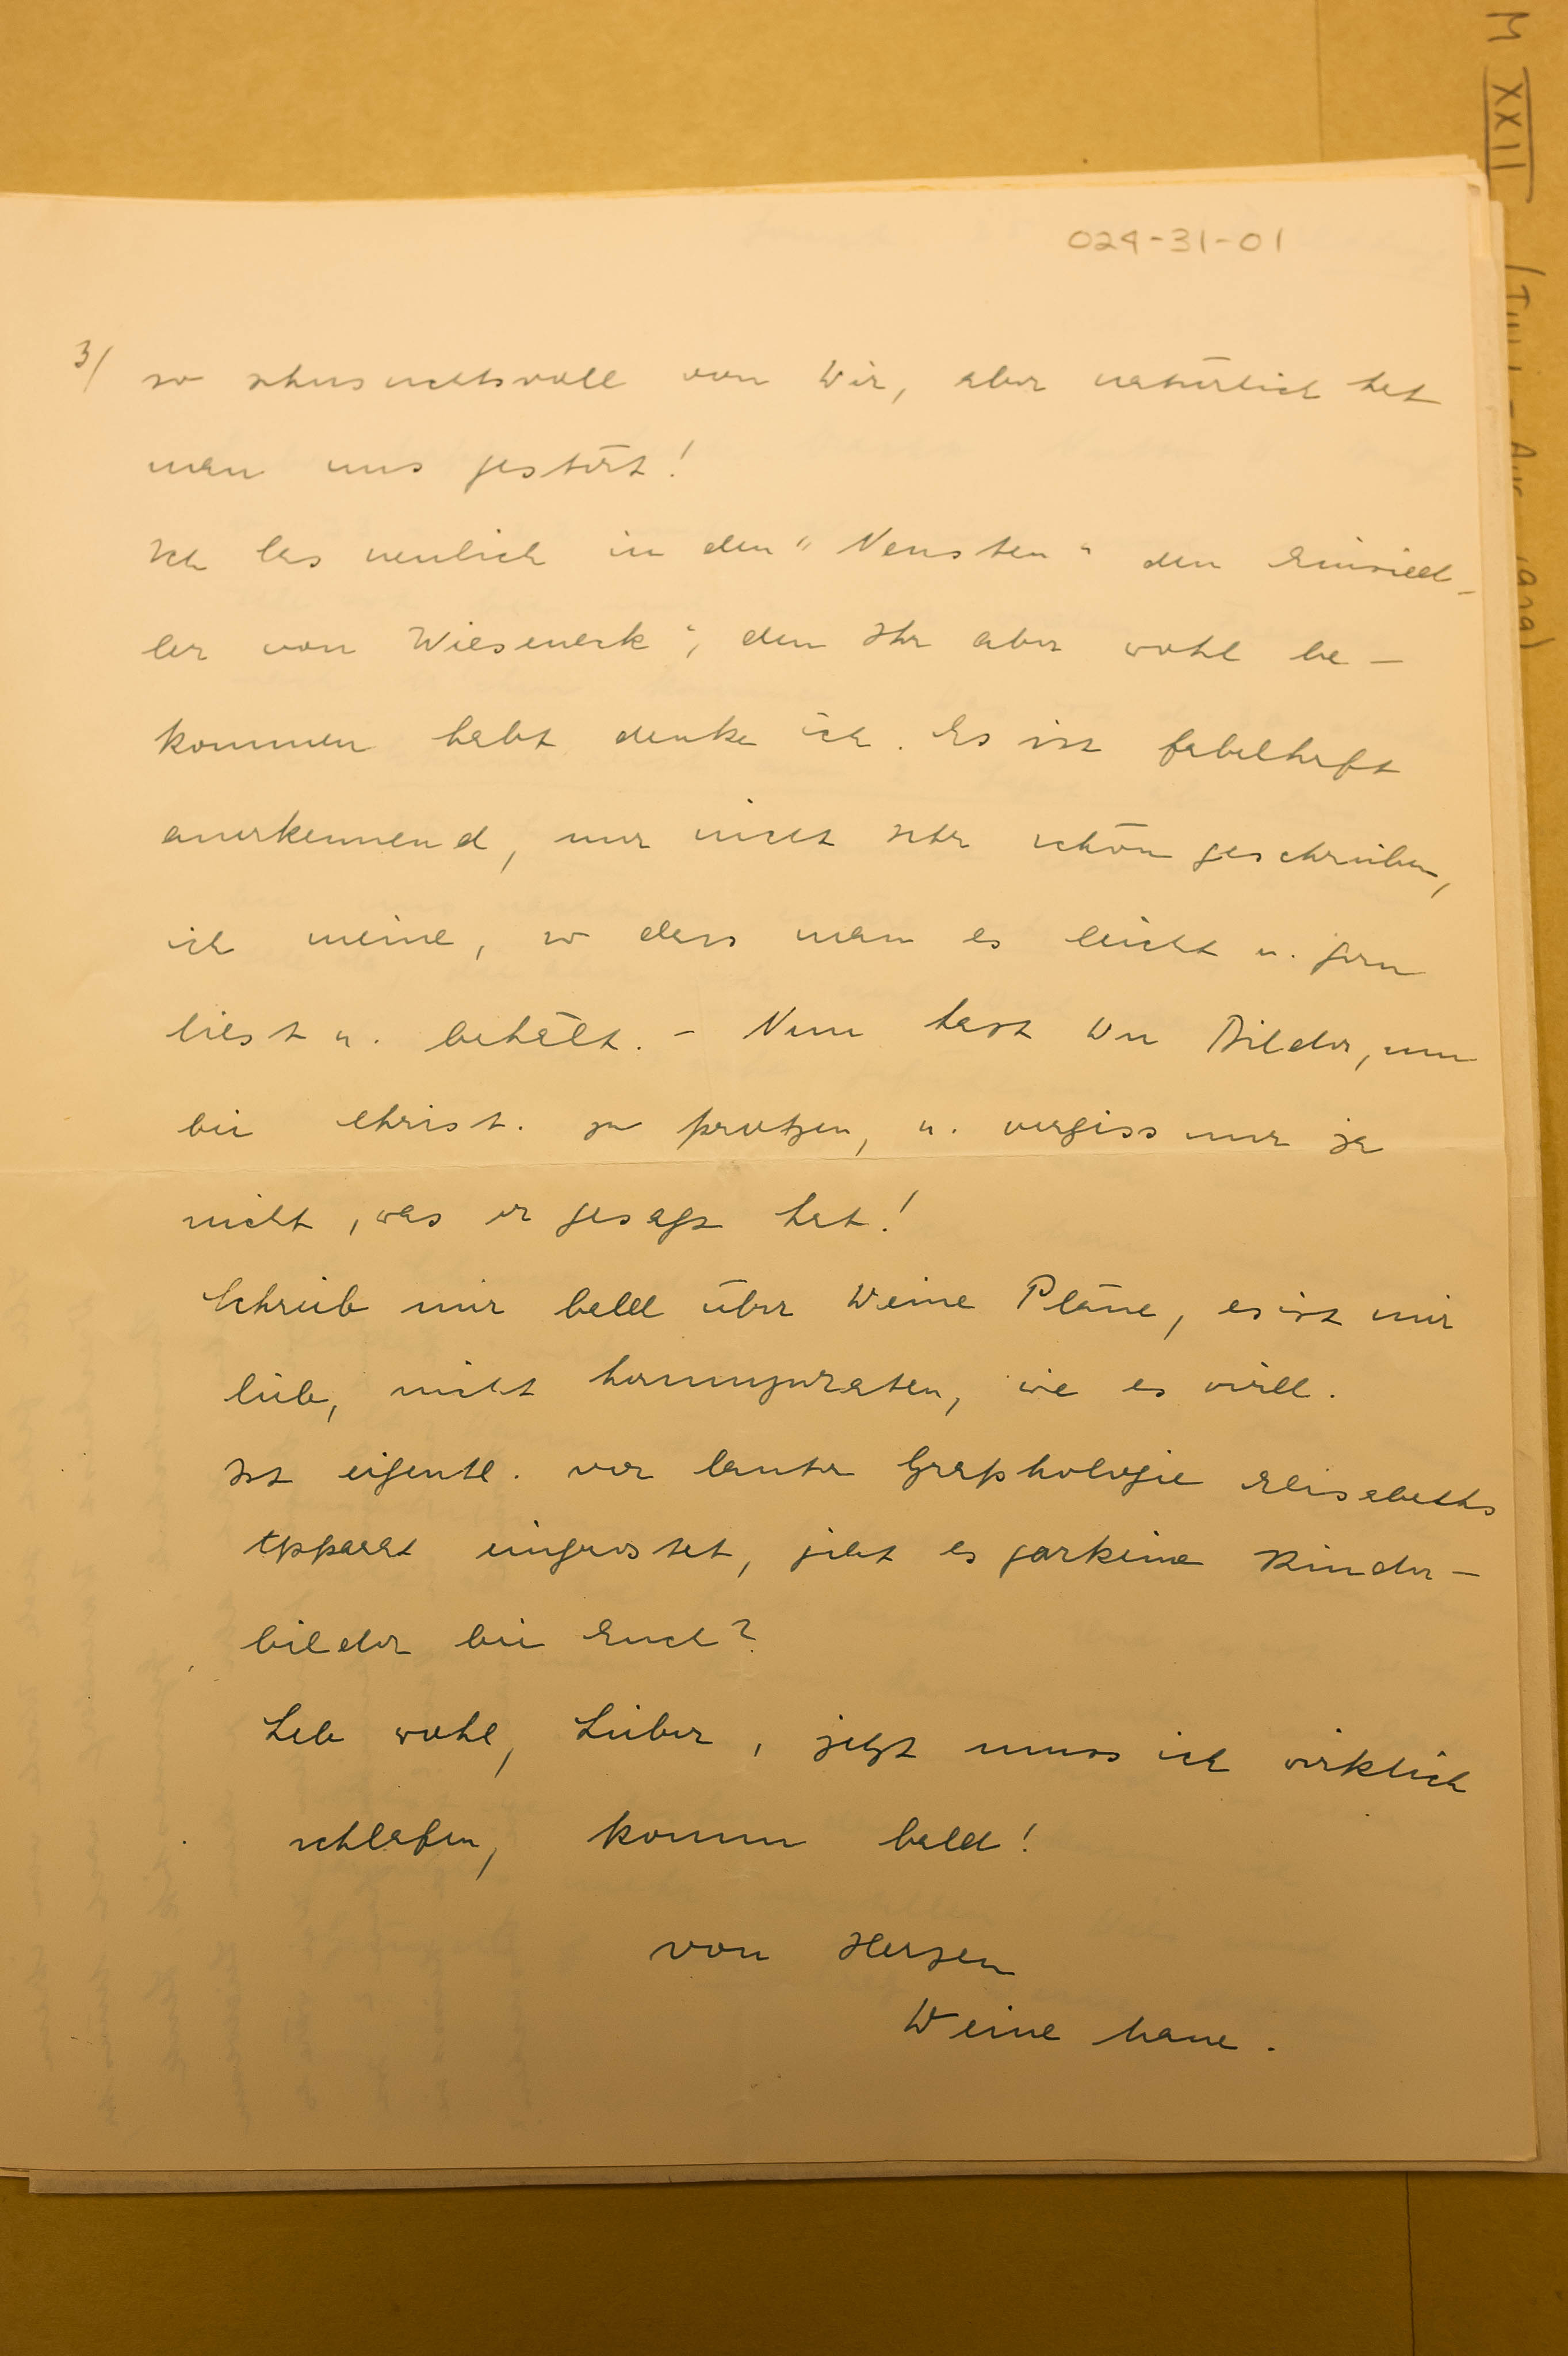 M XXII
024-31-01
3/ so sehnsuchtsvoll von Dir, aber natürlich hat
man uns gestört!
Ich las neulich in den "Neusten" den Einsied-
ler von Wieseneck", den Ihr aber wohl be-
kommen habt denke ich. Es ist fabelhaft
anerkennend, nur nicht sehr schön geschrieben,
ich meine, so dass man es leicht u. gern
liest u. behält. - Nun hast Du Bilder, um
bei Christ. zu protzen, u. vergiss nur ja
nicht, was er gesagt hat!
Schreib mir bald über Deine Pläne, es ist mir
lieb, nicht herumzuraten, wie es wird.
Ist eigentl. vor lauter Graphologie Elisabeths
Apparat eingerostet, gibt es garkeine Kinder-
bilder bei Euch?
Leb wohl, Lieber, jetzt muss ich wirklich
schlafen, komm bald!
von Herzen
Deine